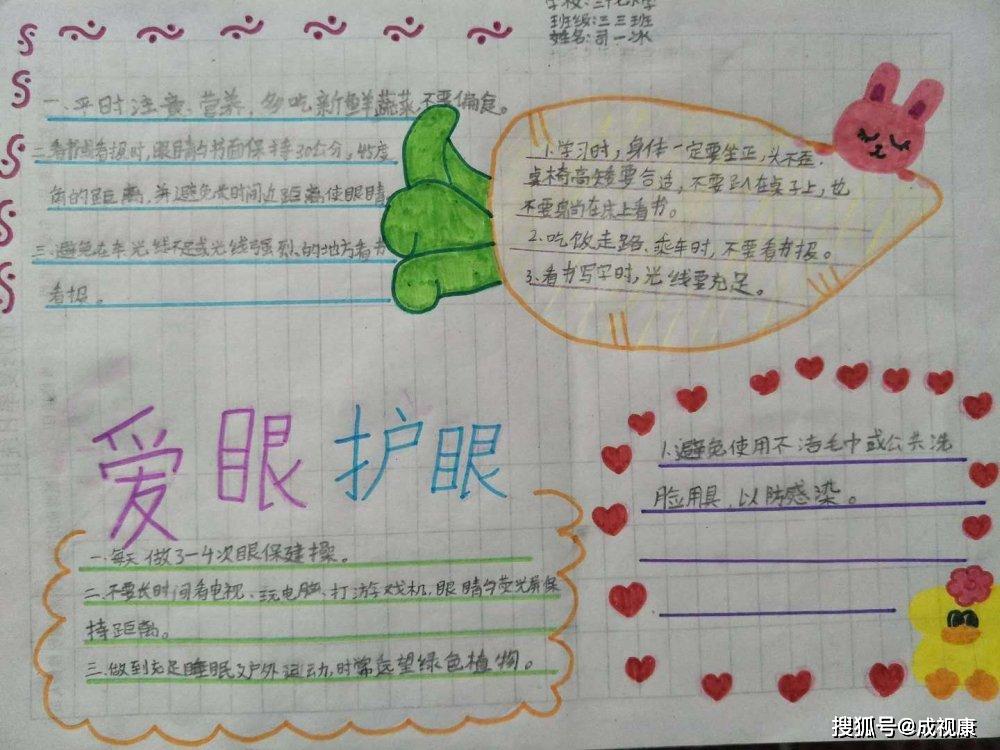 班级:三三班
姓名:司一冰
一、平时注意、营养、多吃新鲜蔬菜,不要偏食。
二、看书或看报时,眼睛与书面保持30公分,45度
角的距离,并避免长时间近距离使眼睛
三、避免在车光线不足或光线强烈的地方看书
看报。
1.学习时,身体一定要坐正,头不歪.
桌椅高矮要合适,不要趴在桌子上,也
不要躺在床上看书。
2.吃饭走路、乘车时,不要看书报。
3.看书写字时,光线要充足。
爱眼护眼
一、每天做3-4次眼保健操。
二、不要长时间看电视、玩电脑、打游戏机,眼睛与荧光屏保
持距离。
三、做到充足睡眠户外运动,时常远望绿色植物。
1.避免使用不洁毛巾或公共洗
脸用具,以防感染。
搜狐号@成视康